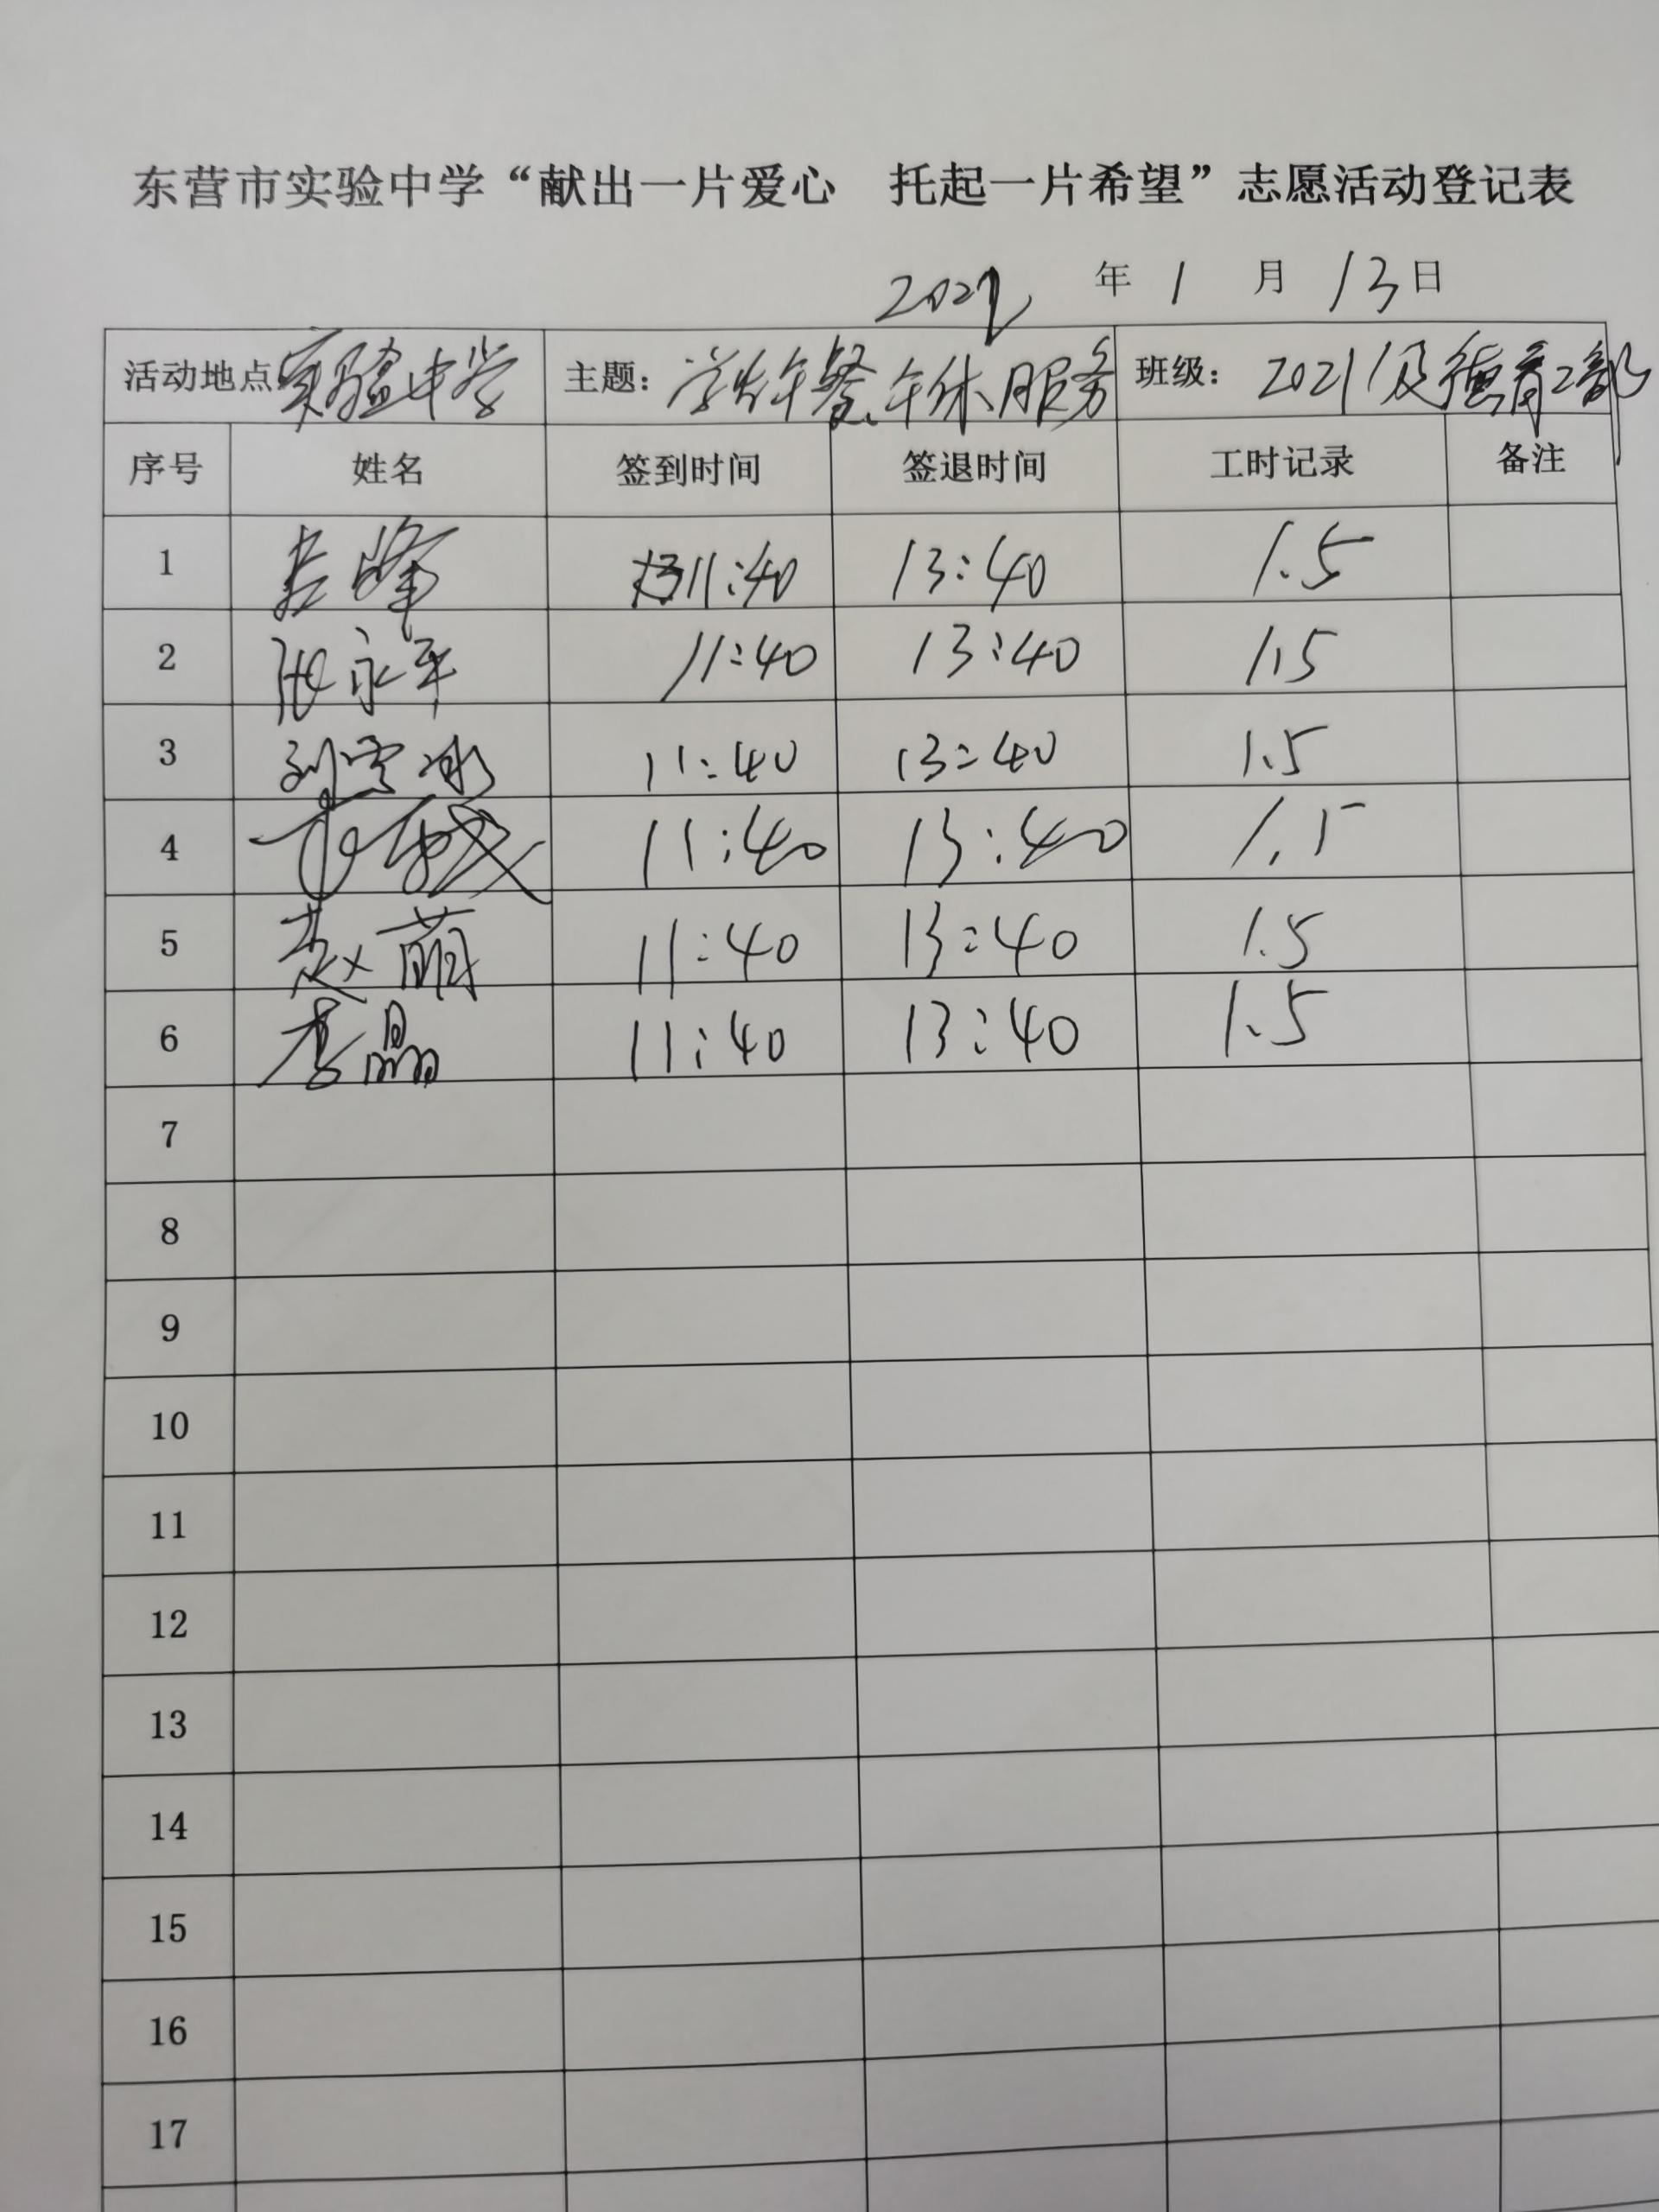 东营市实验中学“献出一片爱心 托起一片希望”志愿活动登记表
2022 年 1 月 13 日
活动地点 实验中学 主题： 学生午餐、午休服务 班级： 2021级德育2部
序号 姓名 签到时间 签退时间 工时记录 备注
1 峰 11:40 13:40 1.5
2 张永平 11:40 13:40 1.5
3 刘雪冰 11:40 13:40 1.5
4 11:40 13:40 1.5
5 赵萌 11:40 13:40 1.5
6 李晶 11:40 13:40 1.5
7
8
9
10
11
12
13
14
15
16
17